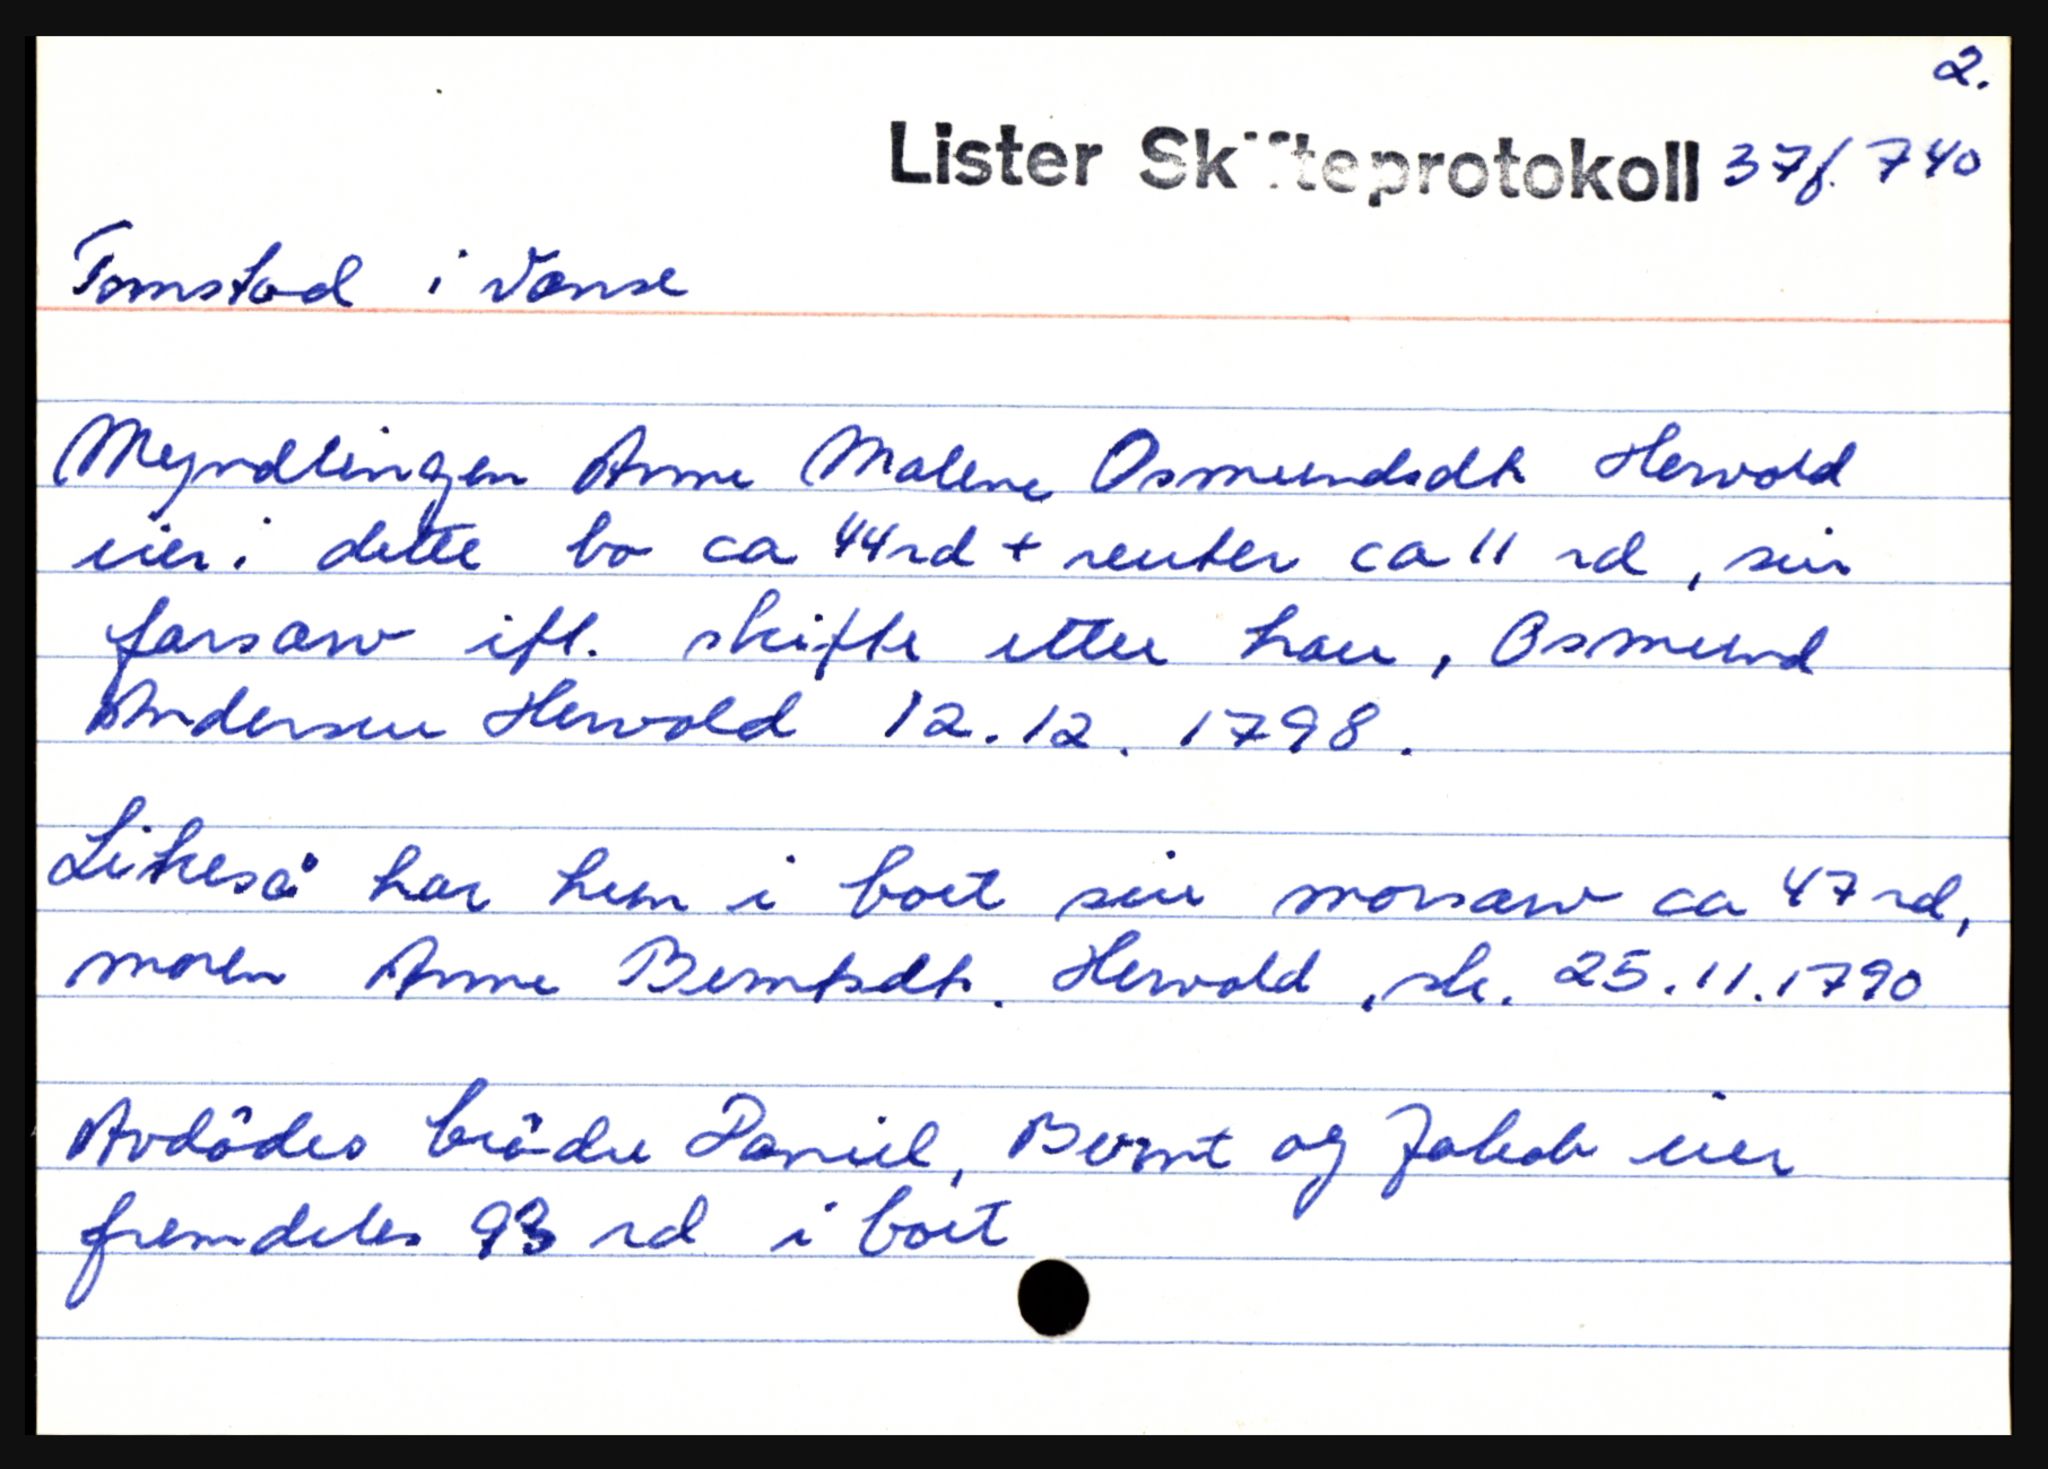 2.
Lister Skifteprotokoll 37f. 740
Tomstad i Vanse
Myndlingen Anne Malene Osmundsdtr Hervold
eier i dette bo ca 44 rd + renter ca 11 rd, sin
farsarv ifl. skifte etter han, Osmund
Andersen Hervold 12.12.1798.
Likeså har hun i boet sin morsarv ca 47 rd,
moren Anne Berntsdtr. Hervold, sk. 25.11.1790
Avdödes brödre Daniel, Bernt og Jakob eier
fremdeles 93 rd i boet